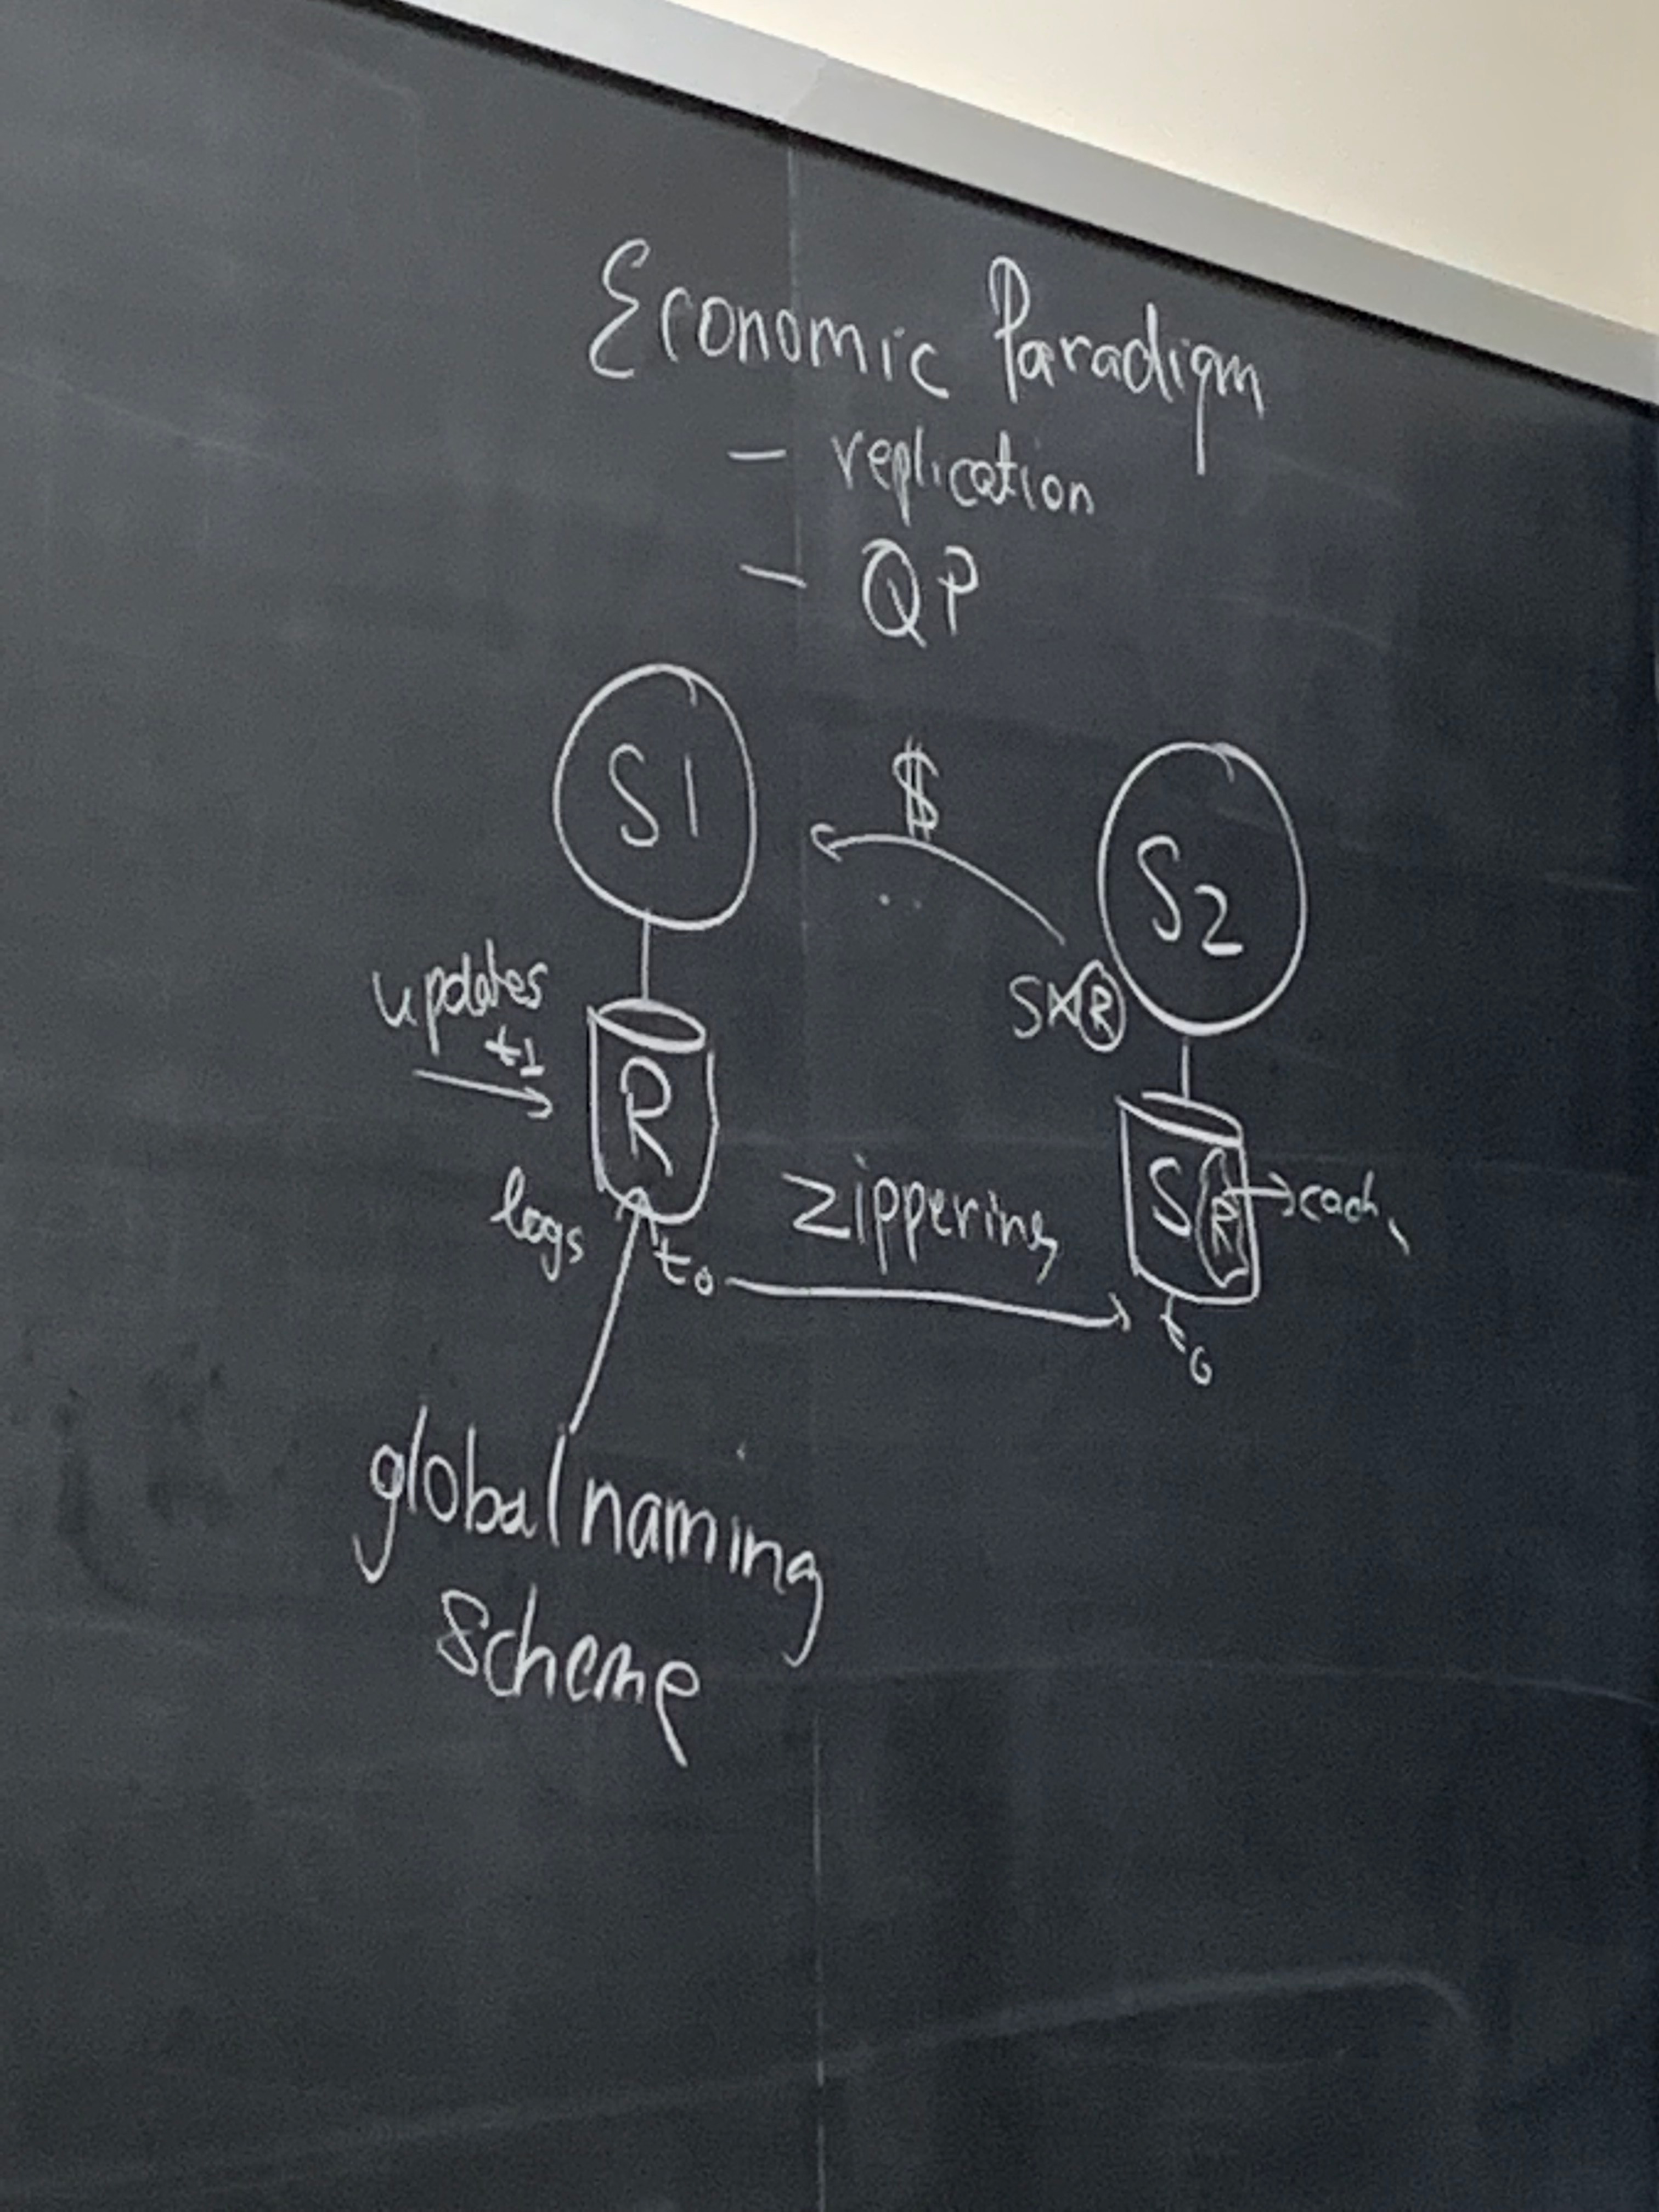 Economic Paradigm
- replication
- QP
S1
$
S2
updates
t1
S⋈R
R
logs
t0
zippering
S R
t0
global naming
scheme